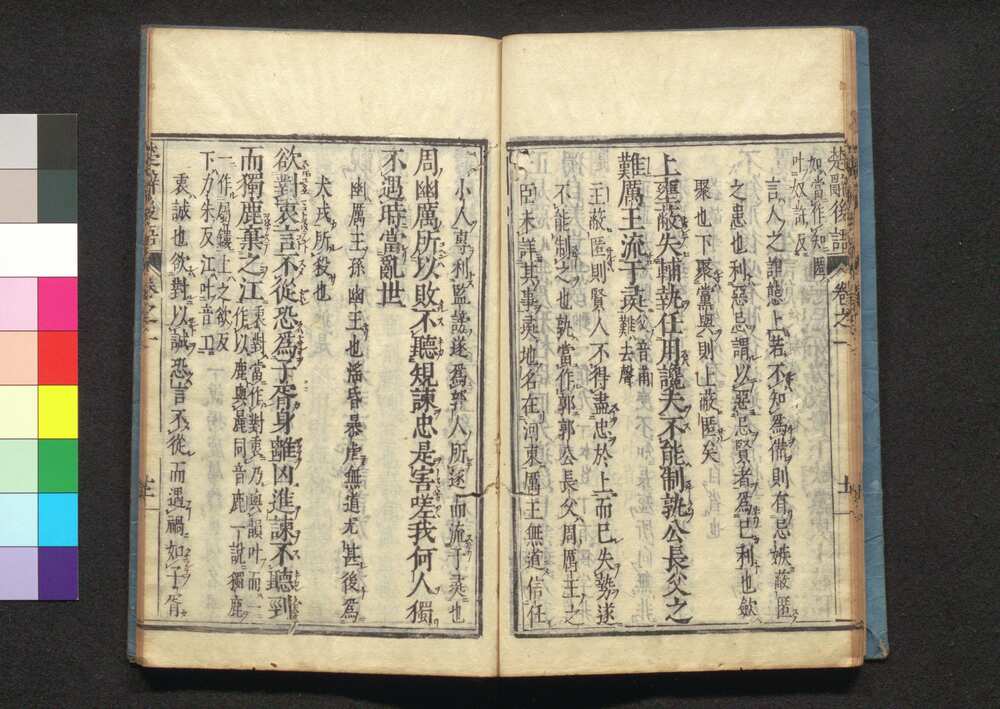 楚辭後語 卷之一 十一
如當作知匿
叶奴計反
言人之讒態上若不知為備則有忌嫉蔽匿
之患也利惡忌謂以惡忌賢者為己利也歛
聚也下聚黨與則上蔽匿矣
上壅蔽失輔埶任用讒夫不能制孰公長父之
難厲王流于彘
父音甫
難去聲
主蔽匿則賢人不得盡忠於上而己失勢遂
不能制之也孰當作郭郭公長父周厲王之
臣未詳其事彘地名在河東厲王無道信任
小人專利監謗遂為郭人所逐而流于彘也
周幽厲所以敗不聽規諫忠是害嗟我何人獨
不遇時當亂世
幽厲王孫幽王也滛昏暴虐無道尤甚後為
犬戎所殺也
欲對衷言不從恐為子胥身離凶進諫不聽剄
而獨鹿棄之江
衷對當作對衷乃與韻叶而一
作以鹿與麗同音鹿一說獨鹿
一作屬鏤上之欲反
下力朱反江叶音工
衷誠也欲對以誠恐言不從而遇禍如子胥
楚辭後語 卷之一 十一